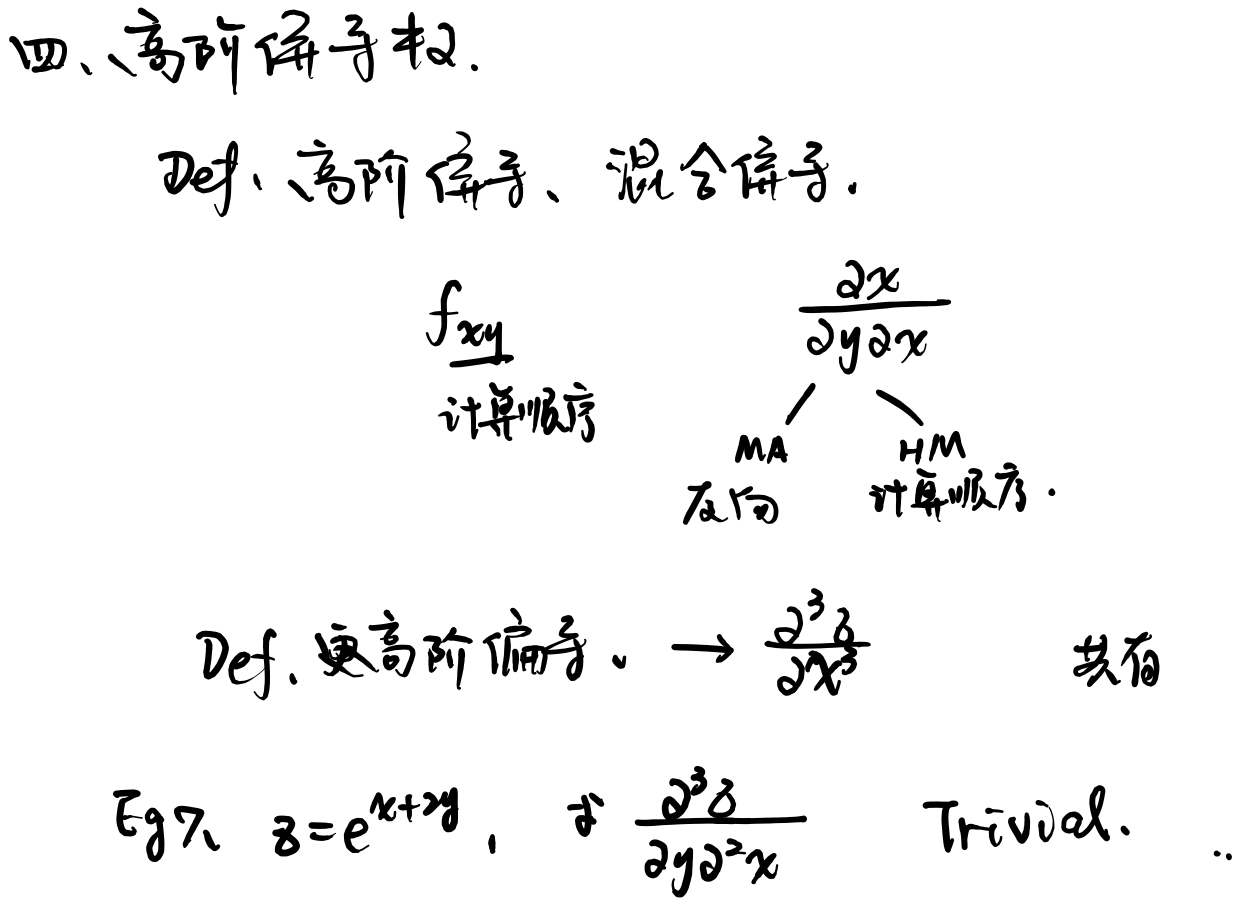 四、高阶偏导数.
Def、高阶偏导、混合偏导.
f_{xy} \frac{∂x}{∂y∂x}
计算顺序
MA HM
反向 计算顺序.
Def、更高阶偏导、→ \frac{∂^3 z}{∂x^3} 共有
Eg7、z=e^{x+2y}, 求 \frac{∂^3 z}{∂y∂^2x} Trivial.